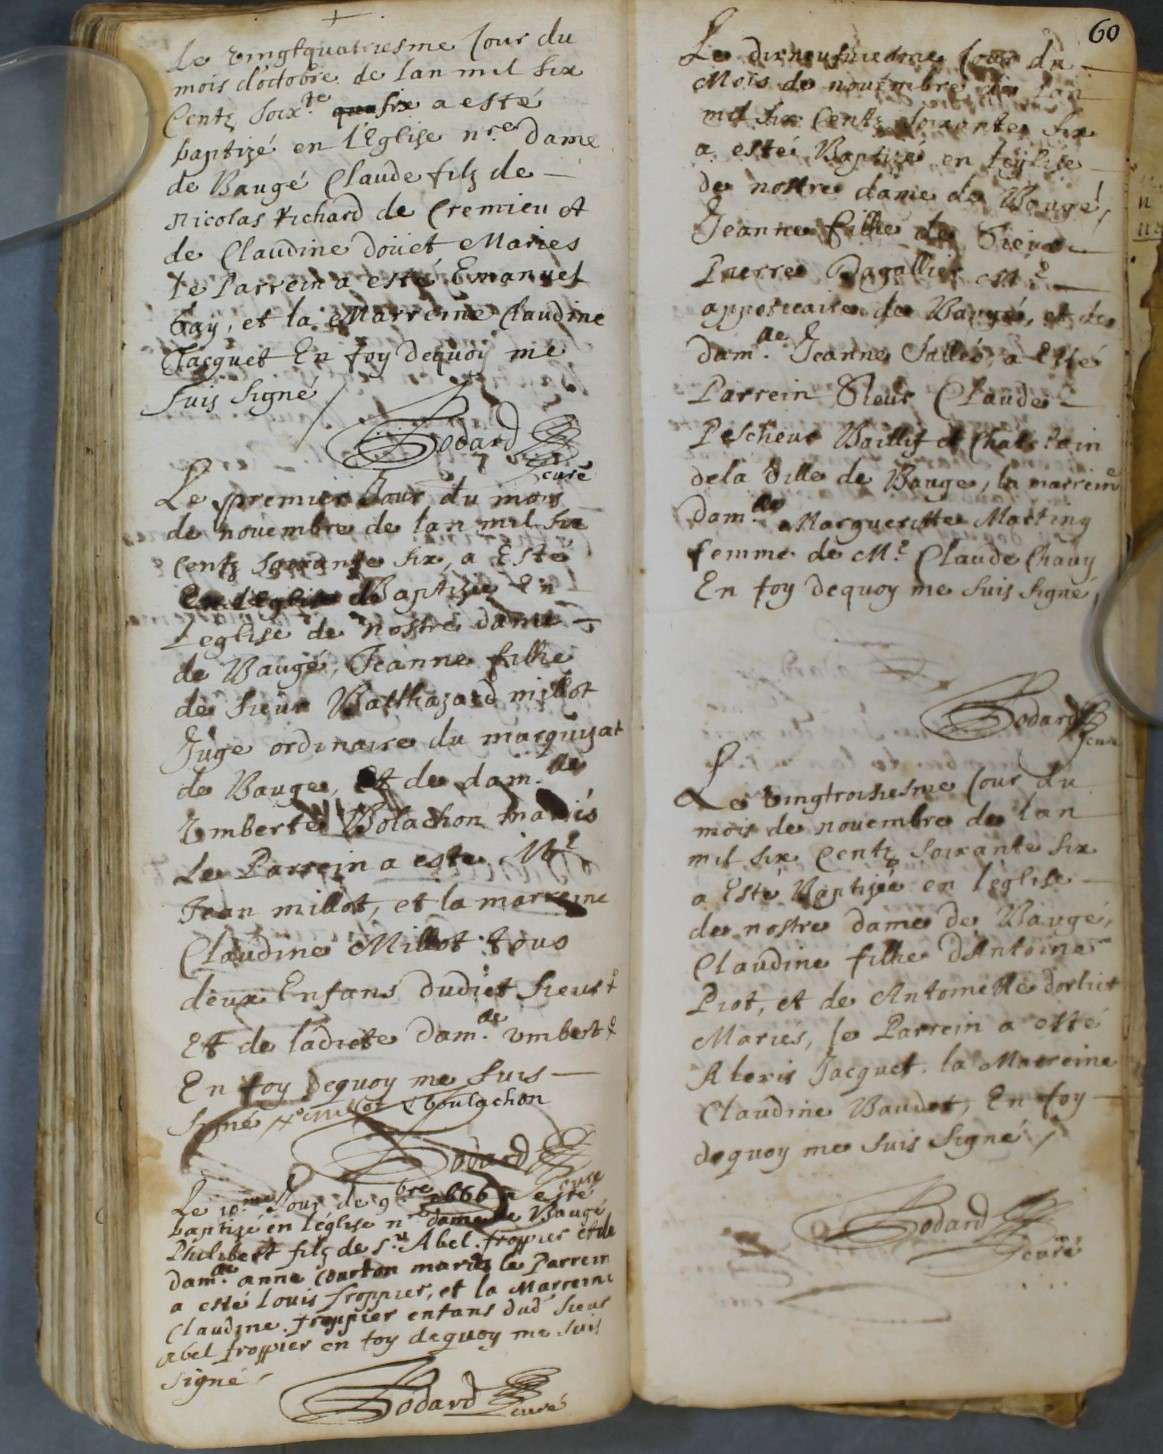 Le vingtquatriesme Jour du
mois doctobre de lan mil six
Centz Soix.te six a esté
baptizé en l'Eglise n.re dame
de Baugé Claude filz de
Nicolas Richard de Cremieu et
de Claudine Doüet Maries
Le Parrein a esté Emanuel
Gay, et la Marreine Claudine
Jacquet En foy dequoy me
suis signé
Bodard
curé
Le premier Jour du mois
de novembre de lan mil six
Centz soixante six, a Esté
Baptizée En
Leglise de nostre dame
de Baugé, Jeanne fillie
de sieur Balthazard millot
Juge ordinaire du marquisat
de Bauge, Et de dam.lle
Umberte Bolachon mariés
Le Parrein a este M.e
Jean millot, et la marreine
Claudine Millot tous
deux Enfans dudict sieur
Et de ladicte Dam.lle Umberte
En foy dequoy me suis
signé Millot boulachon
Bodard
curé
Le 10.me Jour de 9.bre 1666 a esté
baptizé en léglise n.re dame de Baugé
Philibert filz de s.r Abel froppier et de
dam.lle anne Courton mariés le Parrein
a esté Louis froppier, et la Marreine
Claudine froppier enfans dud. sieur
Abel froppier en foy dequoy me suis
signé
Bodard
curé
60
Le dixneufviesme Jour du
Mois de novembre de lan
mil six Centz soixante six
a esté Baptizée en leglise
de nostre dame de Baugé,
Jeanne fillie de Sieur
Pierre Dagallier M.e
appoticaire de Baugé, et de
Dam.lle Jeanne Sallé, a Esté
Parrein Sieur Claude
Pescheur Baillif et Chastelain
dela Ville de Bauge, la marreine
Dam.lle Margueritte Marting
femme de M.e Claude Chavy
En foy dequoy me suis signé,
Bodard
curé
Le vingtroisiesme Jour du
mois de novembre de lan
mil six Centz soixante six
a Esté Baptizée en l'église
de nostre dame de Baugé,
Claudine fillie dAntoine
Piot, et de Antoinette Dorlict
Maries, le Parrein a esté
Alexis Jacquet, la Marreine
Claudine Baudet, En foy
dequoy me suis signé
Bodard
curé